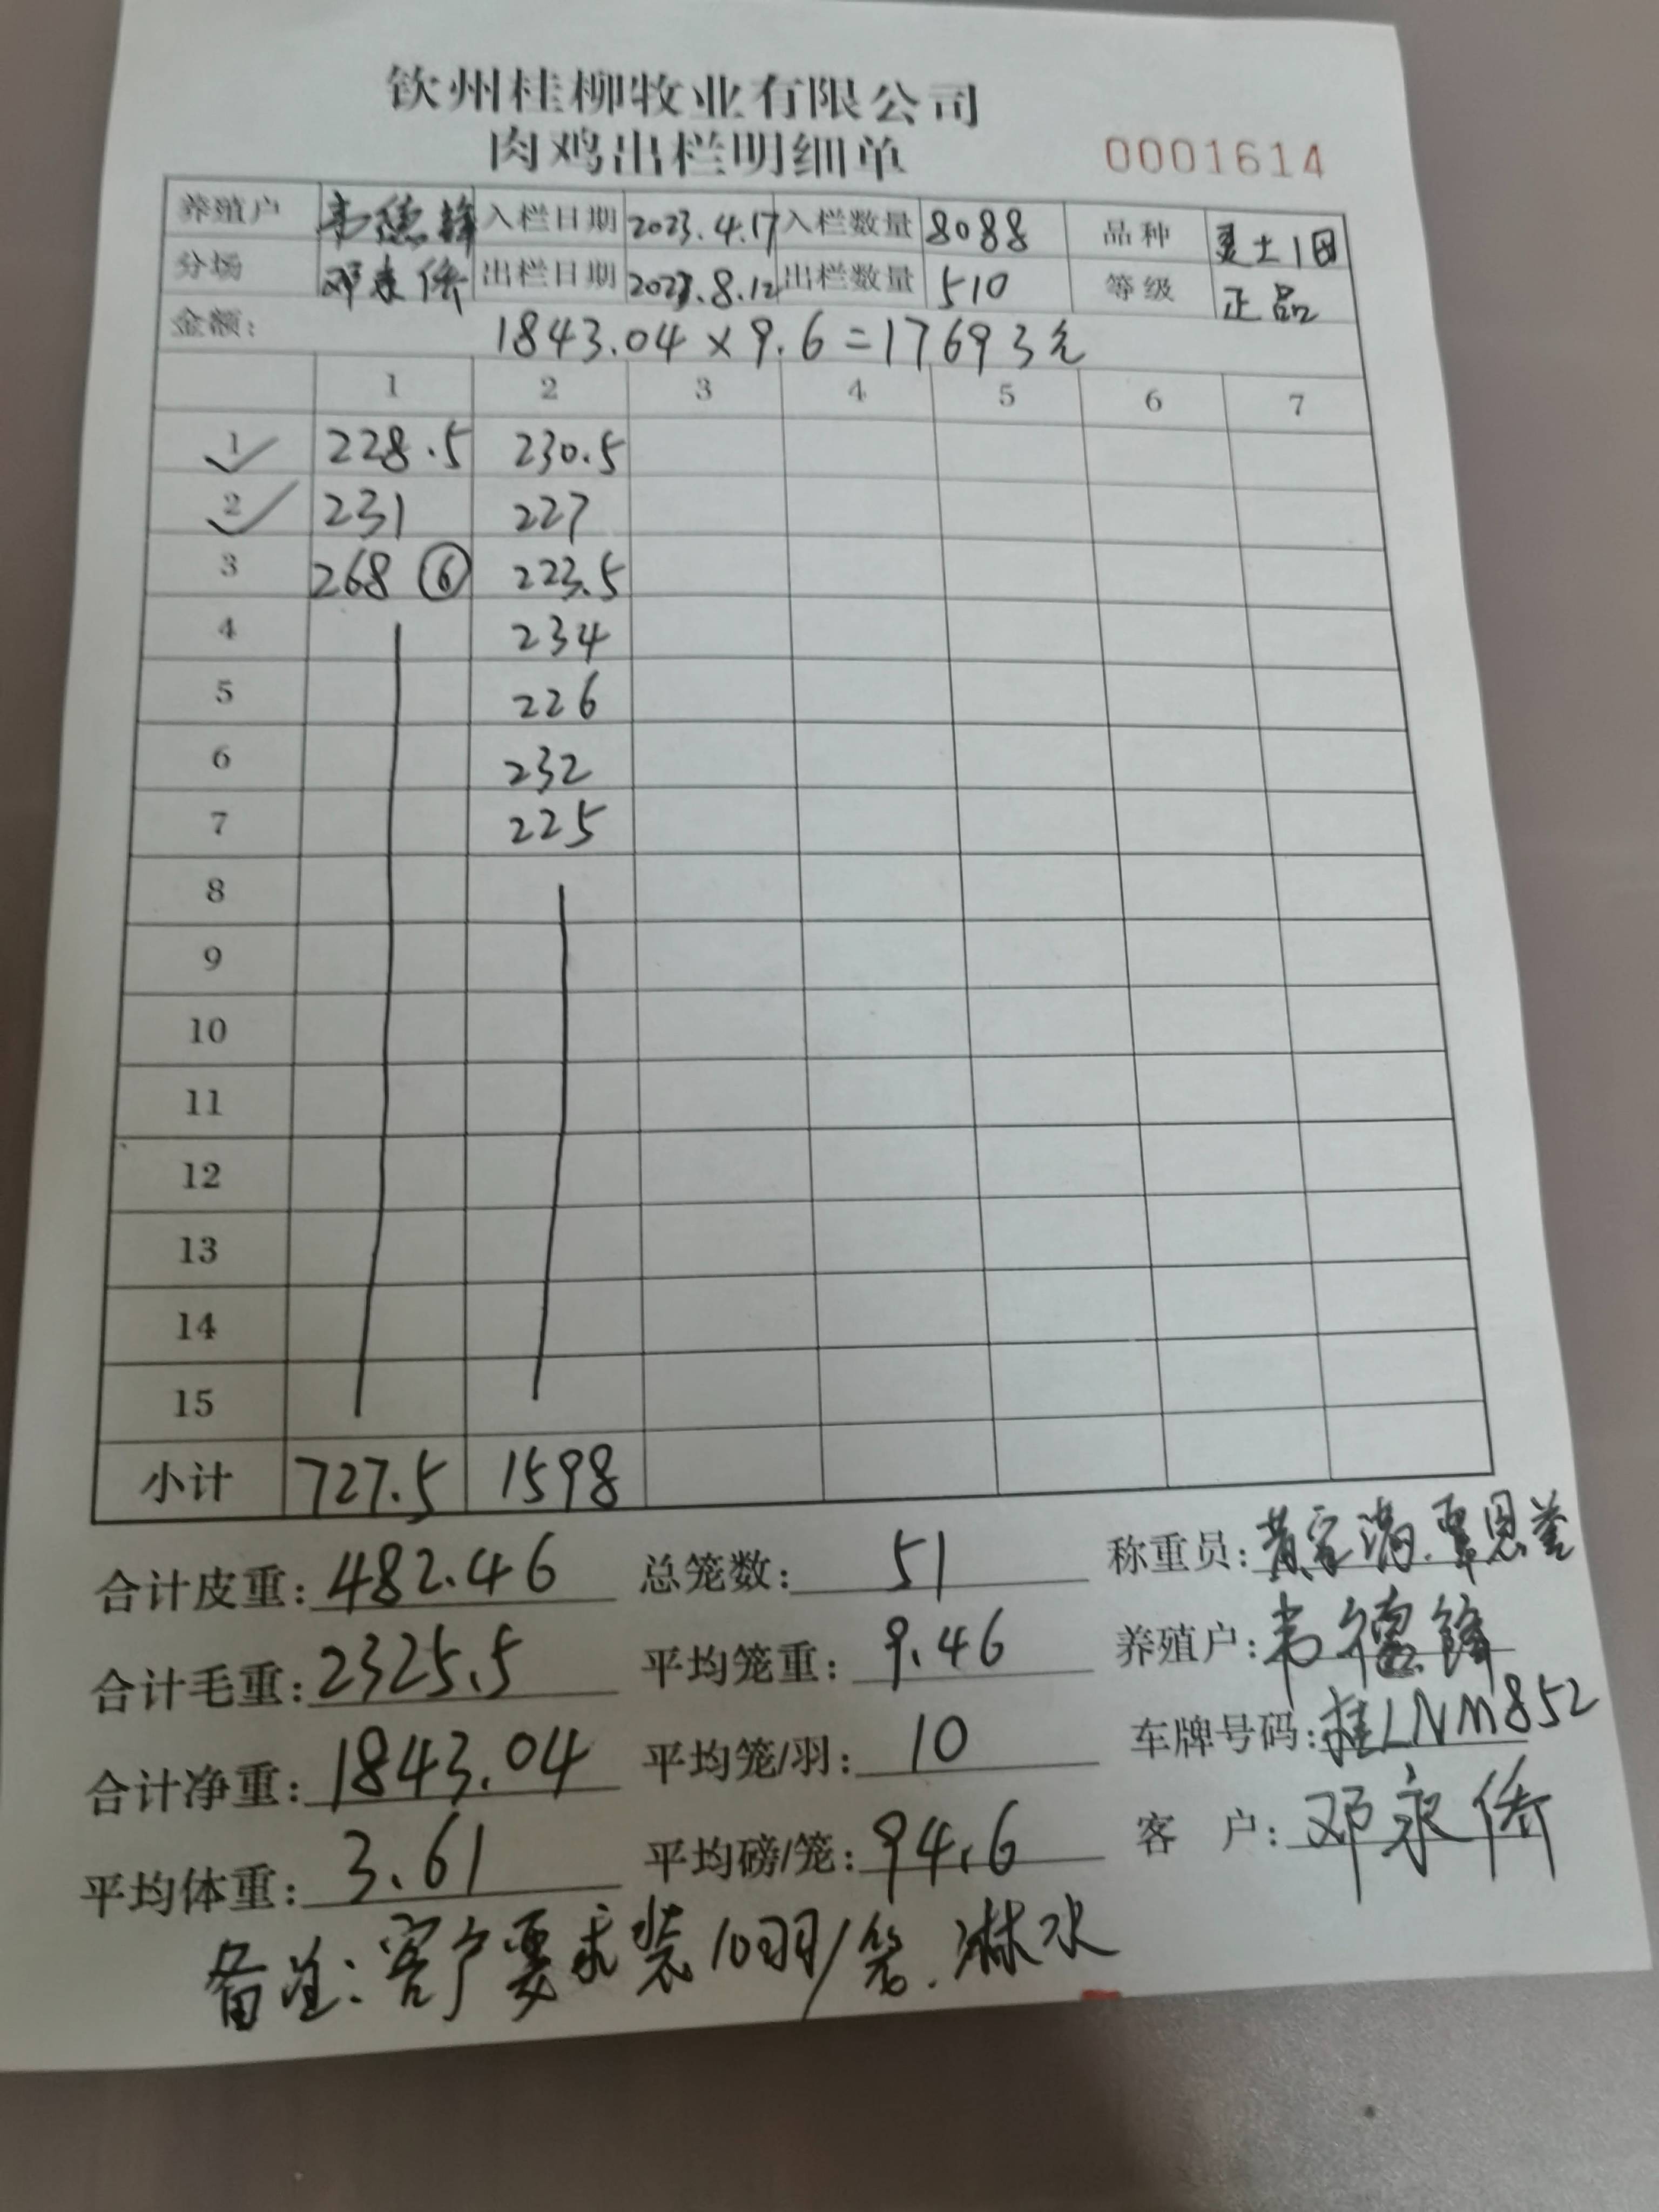 钦州桂柳牧业有限公司
肉鸡出栏明细单 0001614
养殖户 韦德锋 入栏日期 2023.4.17 入栏数量 8088 品种 土1
分场 邓永侨 出栏日期 2023.8.12 出栏数量 510 等级 正品
金额: 1843.04×9.6=17693元
1 2 3 4 5 6 7
1 228.5 230.5
2 231 227
3 268 ⑥ 223.5
4 234
5 226
6 232
7 225
8
9
10
11
12
13
14
15
小计 727.5 1598
合计皮重: 482.46 总笼数: 51 称重员: 黄家满.覃恩
合计毛重: 2325.5 平均笼重: 9.46 养殖户: 韦德锋
合计净重: 1843.04 平均笼/羽: 10 车牌号码: 桂LNM852
平均体重: 3.61 平均磅/笼: 94.6 客 户: 邓永侨
备注: 客户要求装10羽/笼.淋水